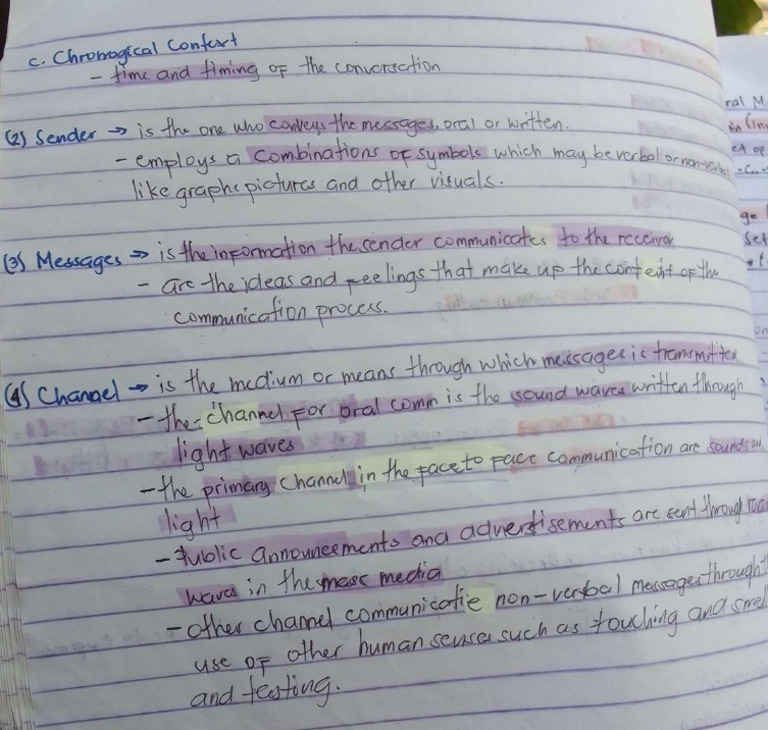 c. Chronogical Context
- time and timing of the conversaction
(2) Sender → is the one who conveys the messages, oral or written.
- employs a combinations of symbols which may be verbal or non-verbal
like graphs pictures and other visuals.
(3) Messages → is the information the sender communicates to the receiver
- are the ideas and feelings that make up the content of the
communication process.
(4) Channel → is the medium or means through which messages is transmitted
- the channel for oral comm is the sound waves written through
light waves
- the primary channel in the face to face communication are sound
light
- Public announcements and advertisements are sent through
waves in the mass media
- other channel communicatie non-verbal messages through
use of other human senses such as touching and smel
and testing.
ral M
et op
ge
set